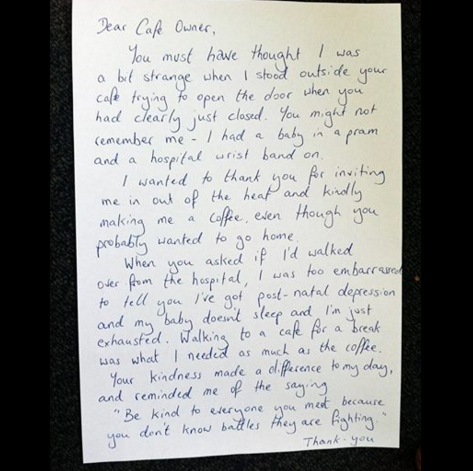 Dear Cafe Owner,
You must have thought I was
a bit strange when I stood outside your
cafe trying to open the door when you
had clearly just closed. You might not
remember me - I had a baby in a pram
and a hospital wrist band on.
I wanted to thank you for inviting
me in out of the heat and kindly
making me a coffee, even though you
probably wanted to go home.
When you asked if I'd walked
over from the hospital, I was too embarrassed
to tell you I've got post-natal depression
and my baby doesn't sleep and I'm just
exhausted. Walking to a cafe for a break
was what I needed as much as the coffee.
Your kindness made a difference to my day,
and reminded me of the saying
"Be kind to everyone you meet because
you don't know battles they are fighting."
Thank-you